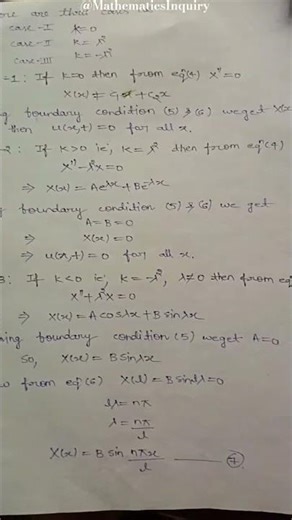 @MathematicsInquiry
are three
case-I k=0
case-II k=λ²
case-III k=-λ²
-1: If k=0 then from eqⁿ(4) X''=0
X(x) = C₁x+C₂
boundary condition (5) & (6) we get X(x)
then u(x,t)=0 for all x.
-2: If k>0 ie; k=λ² then from eqⁿ(4)
X''-λ²x=0
⇒ X(x) = Ae^λx+Be^-λx
boundary condition (5) & (6) we get
A=B=0
⇒ X(x)=0
⇒ u(x,t)=0 for all x.
3: If k<0 ie; k=-λ², λ≠0 then from eqⁿ
X''+λ²x=0
⇒ X(x)=Acosλx+Bsinλx
ing boundary condition (5) we get A=0
So, X(x)=Bsinλx
from eqⁿ(6) X(l)=Bsinλl=0
lλ=nπ
λ=nπ/l
X(x)=B sin nπx/l —— ⑦